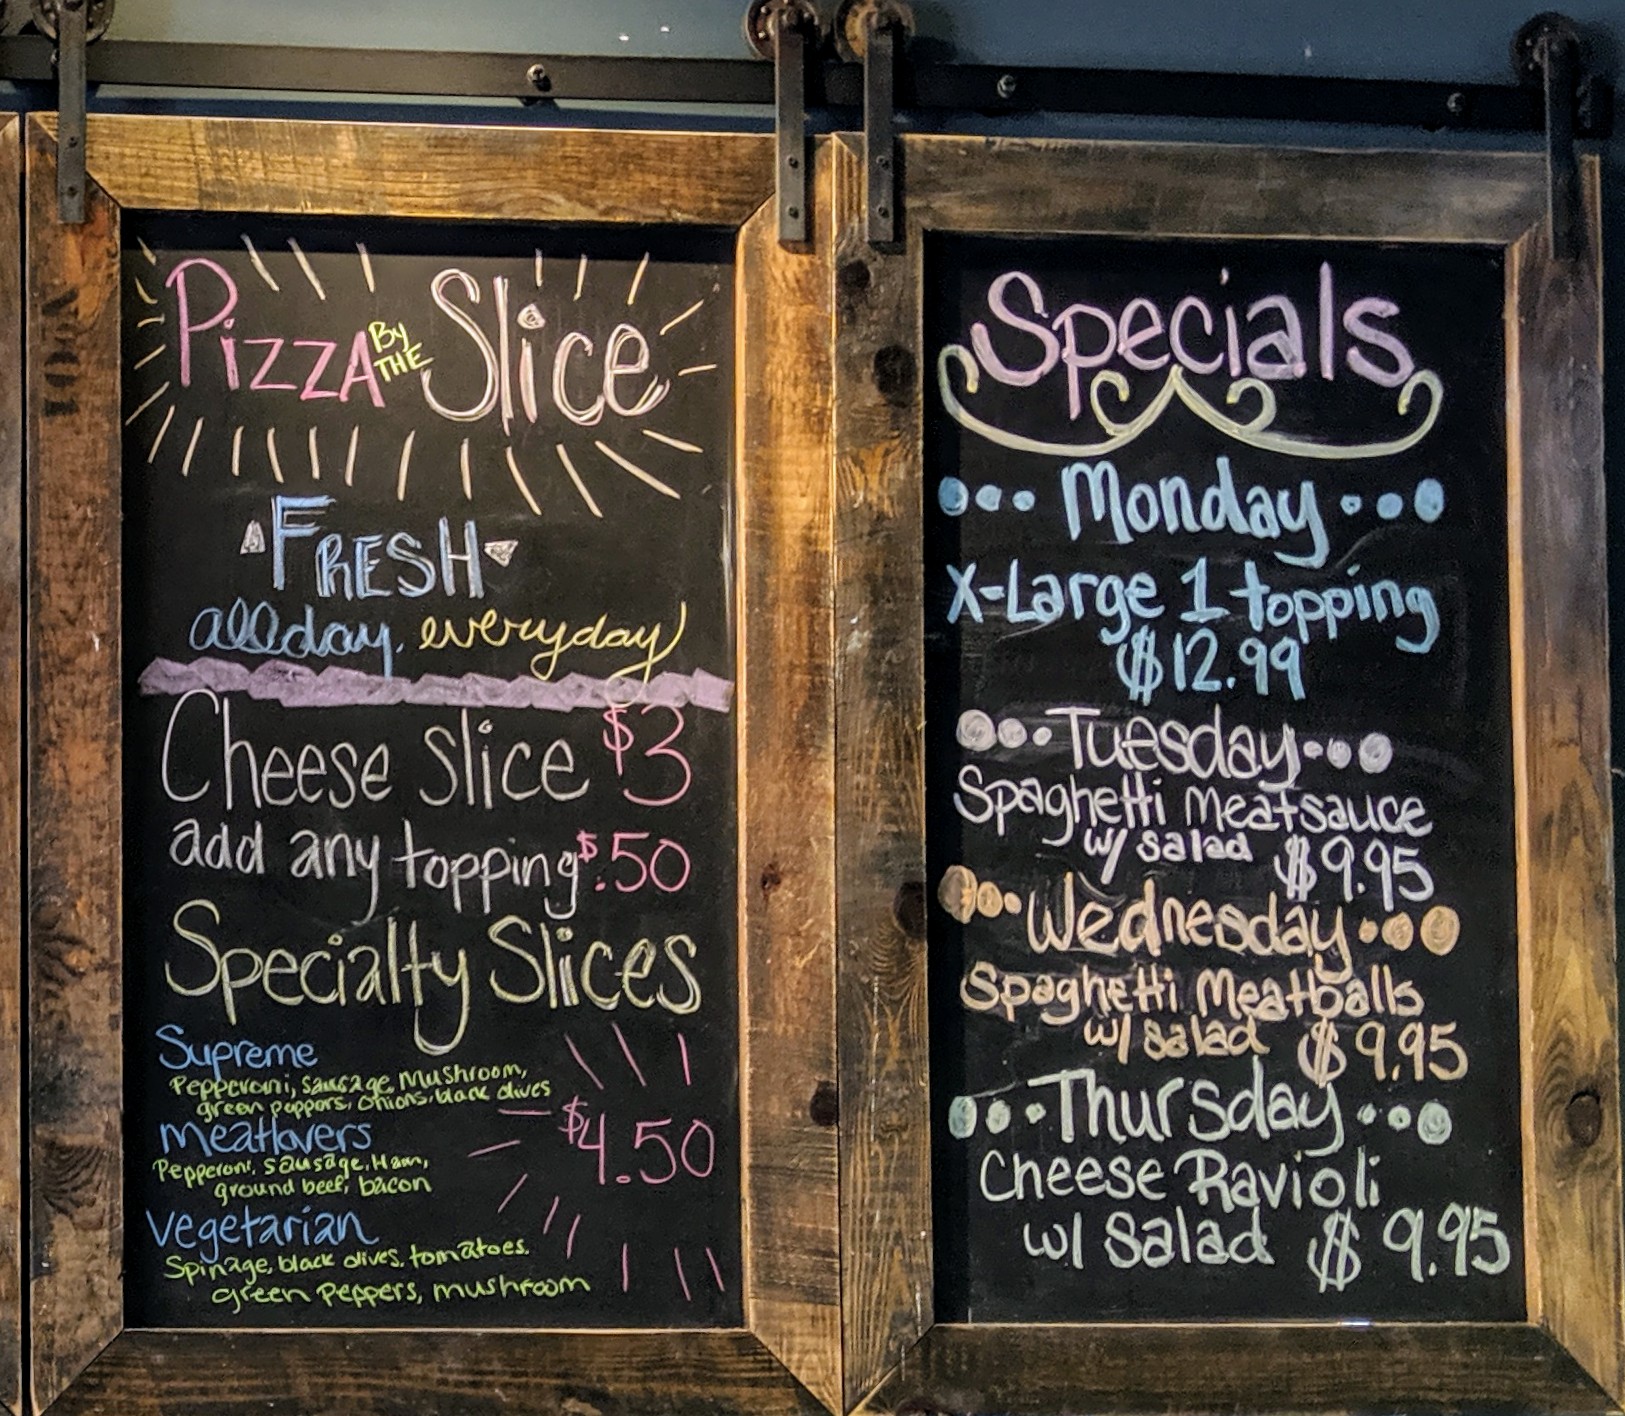 Pizza By THE Slice
FRESH
all day, everyday
Cheese slice $3
add any topping $.50
Specialty Slices
Supreme
Pepperoni, sausage, Mushroom,
green peppors, onions, black olives
meatlovers
Pepperoni, sausage, Ham,
ground beef, bacon
$4.50
vegetarian
Spinage, black olives, tomatoes,
green Peppers, mushroom
Specials
Monday
X-Large 1 topping
$12.99
Tuesday
Spaghetti meatsauce
w/ salad $9.95
Wednesday
Spaghetti Meatballs
w/ salad $9.95
Thursday
Cheese Ravioli
w/ Salad $9.95